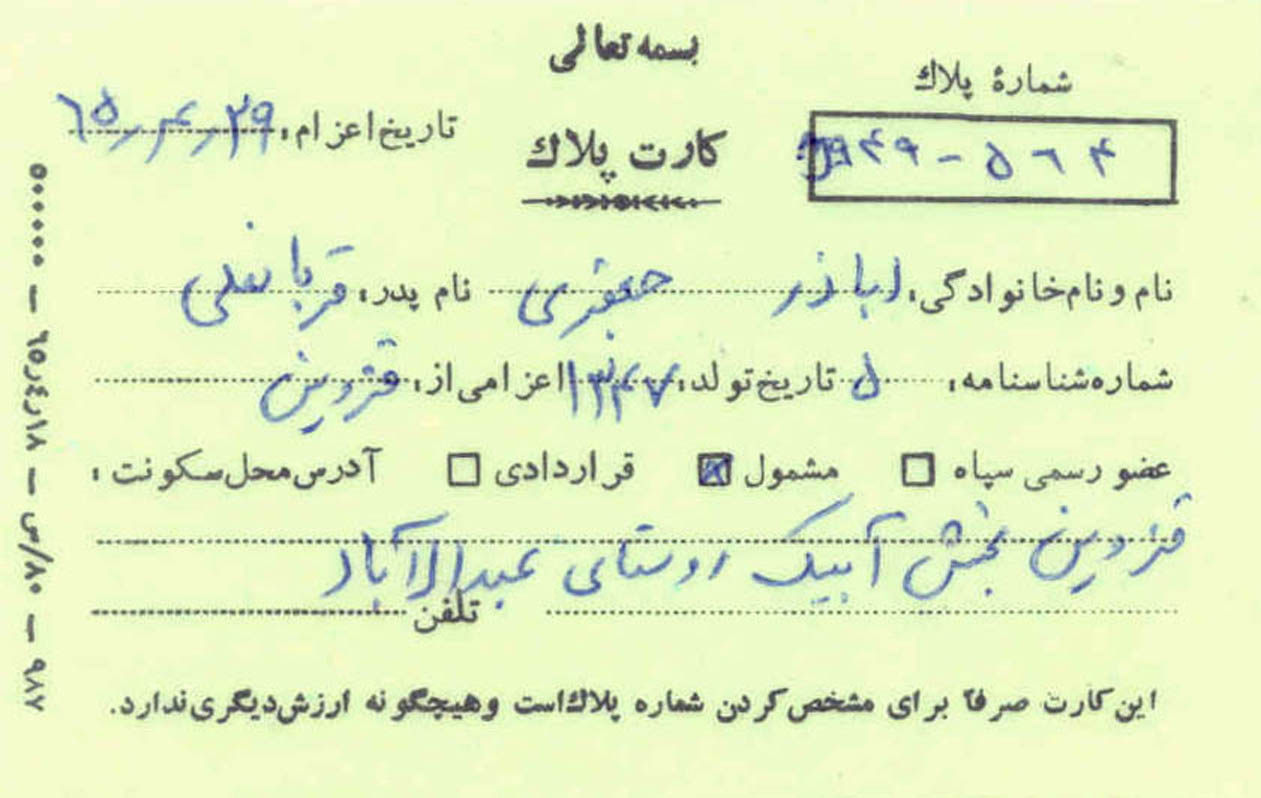 بسمه تعالی
شمارهٔ پلاك
کارت پلاك
تاریخ اعزام: ۲۹ر ر۶۵
۵۶۴ - ۹۴۹
نام و نام خانوادگی: اباذر جعفری نام پدر: قربانعلی
شماره شناسنامه: ۵ تاریخ تولد: ۱۳۴۷ اعزامی از: قزوین
عضو رسمی سپاه □ مشمول ☒ قراردادی □ آدرس محل سکونت:
قزوین بخش آبیک روستای عبدالاآباد
تلفن
این کارت صرفاً برای مشخص کردن شماره پلاك است وهیچگونه ارزش دیگری ندارد.
۹۸۷ — ۸۰/س — ۶۵ر٤ر۱۸ — ۵۰۰۰۰۰